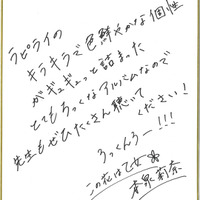 ラピライの
キラキラで色鮮やかな個性
がギュギュっと詰まった
とてもろっくなアルバムなので
先生もぜひたくさん聴いて
ください!
ろっくんろー!!!
この花は乙女